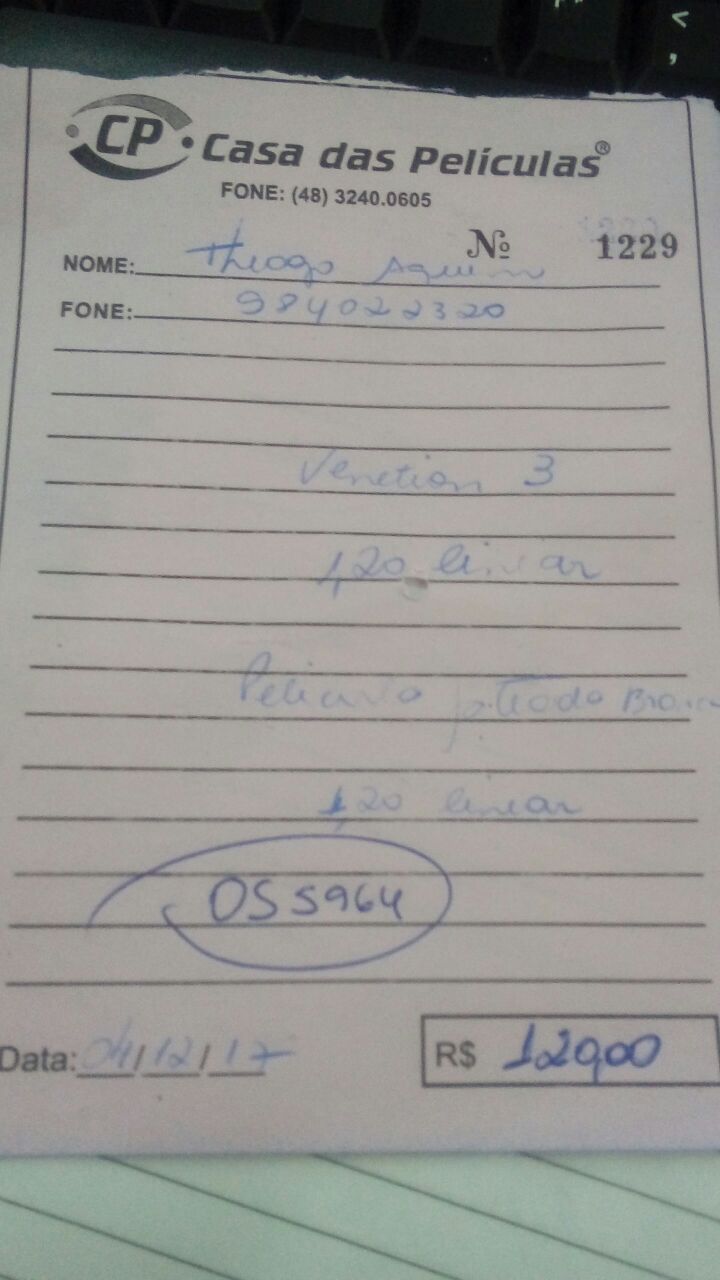 CP Casa das Películas®
FONE: (48) 3240.0605
Nº 1229
NOME: Thiago
FONE: 984022320
Venetian 3
1,20 linear
Pelicula p.
1,20 linear
OS 5964
Data: 04/12/17 R$ 120,00